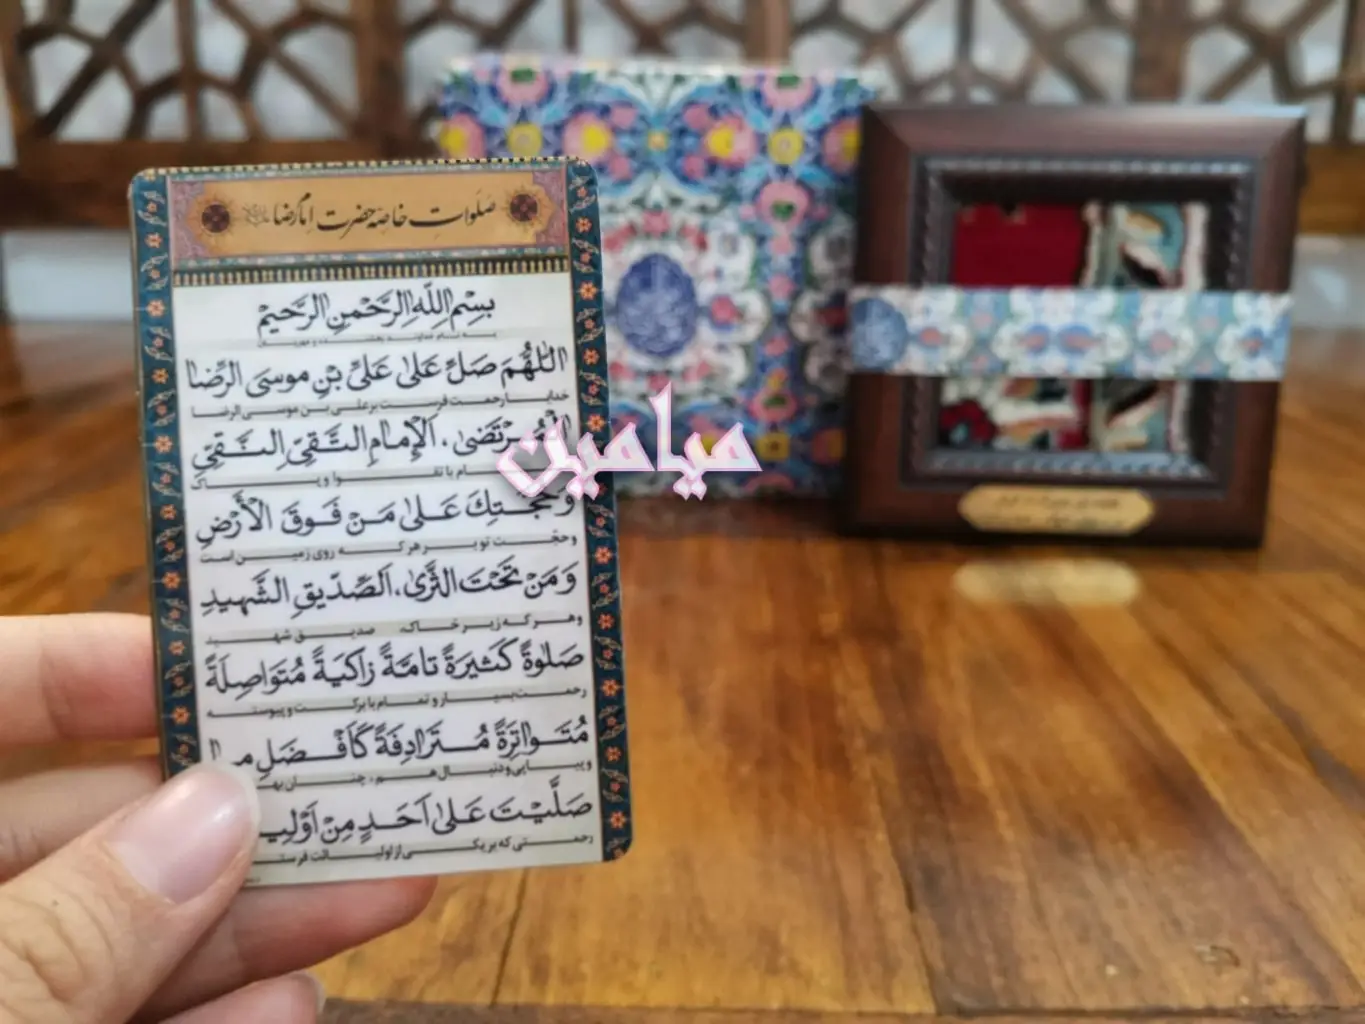 صلوات خاصه حضرت امام رضا
بِسْمِ اللّٰهِ الرَّحْمٰنِ الرَّحیٖمِ
به نام خداوند بخشنده و مهربان
اَللّٰهُمَّ صَلِّ عَلیٰ عَلیِّ بْنِ موسَی الرِّضَا
خدایا رحمت فرست بر علی بن موسی الرضا
الْمُرْتَضیٰ، اَلْإمامِ التَّقیِّ النَّقیِّ
امام با تقوا و پاک
وَ حُجَّتِکَ عَلیٰ مَنْ فَوْقَ الْأَرْضِ
و حجت تو بر هر که روی زمین است
وَ مَنْ تَحْتَ الثَّریٰ، اَلصِّدّیقِ الشَّهیدِ
و هر که زیر خاک، صدیق شهید
صَلٰوةً کَثیرَةً تامَّةً زاکِیَةً مُتَواصِلَةً
رحمت بسیار و تمام با برکت و پیوسته
مُتَواتِرَةً مُتَرادِفَةً کَأَفْضَلِ مـا
و پیاپی و دنبال هم، چنان به
صَلَّیْتَ عَلیٰ اَحَدٍ مِنْ اَوْلِیـ
رحمتی که بر یکی از اولیائت فرستـ
میامین